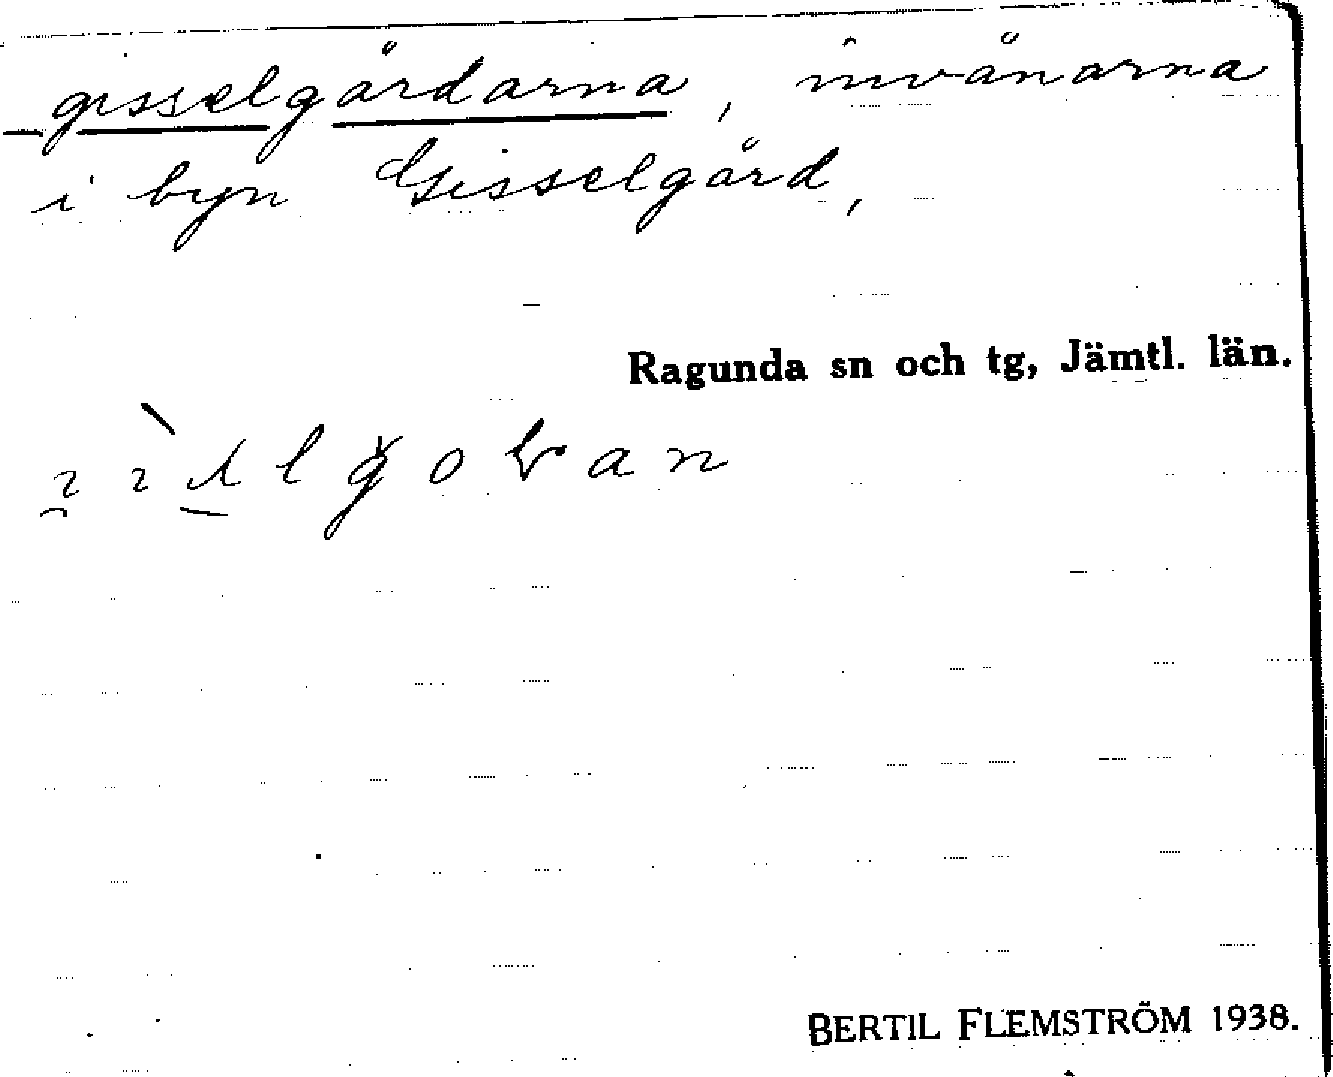 gisselgårdarna, invånarna
i byn Gisselgård,
Ragunda sn och tg, Jämtl. län.
BERTIL FLEMSTRÖM 1938.